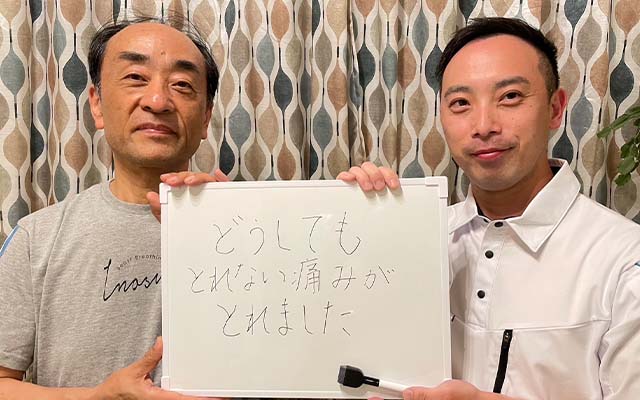 どうしても
とれない痛みが
とれました